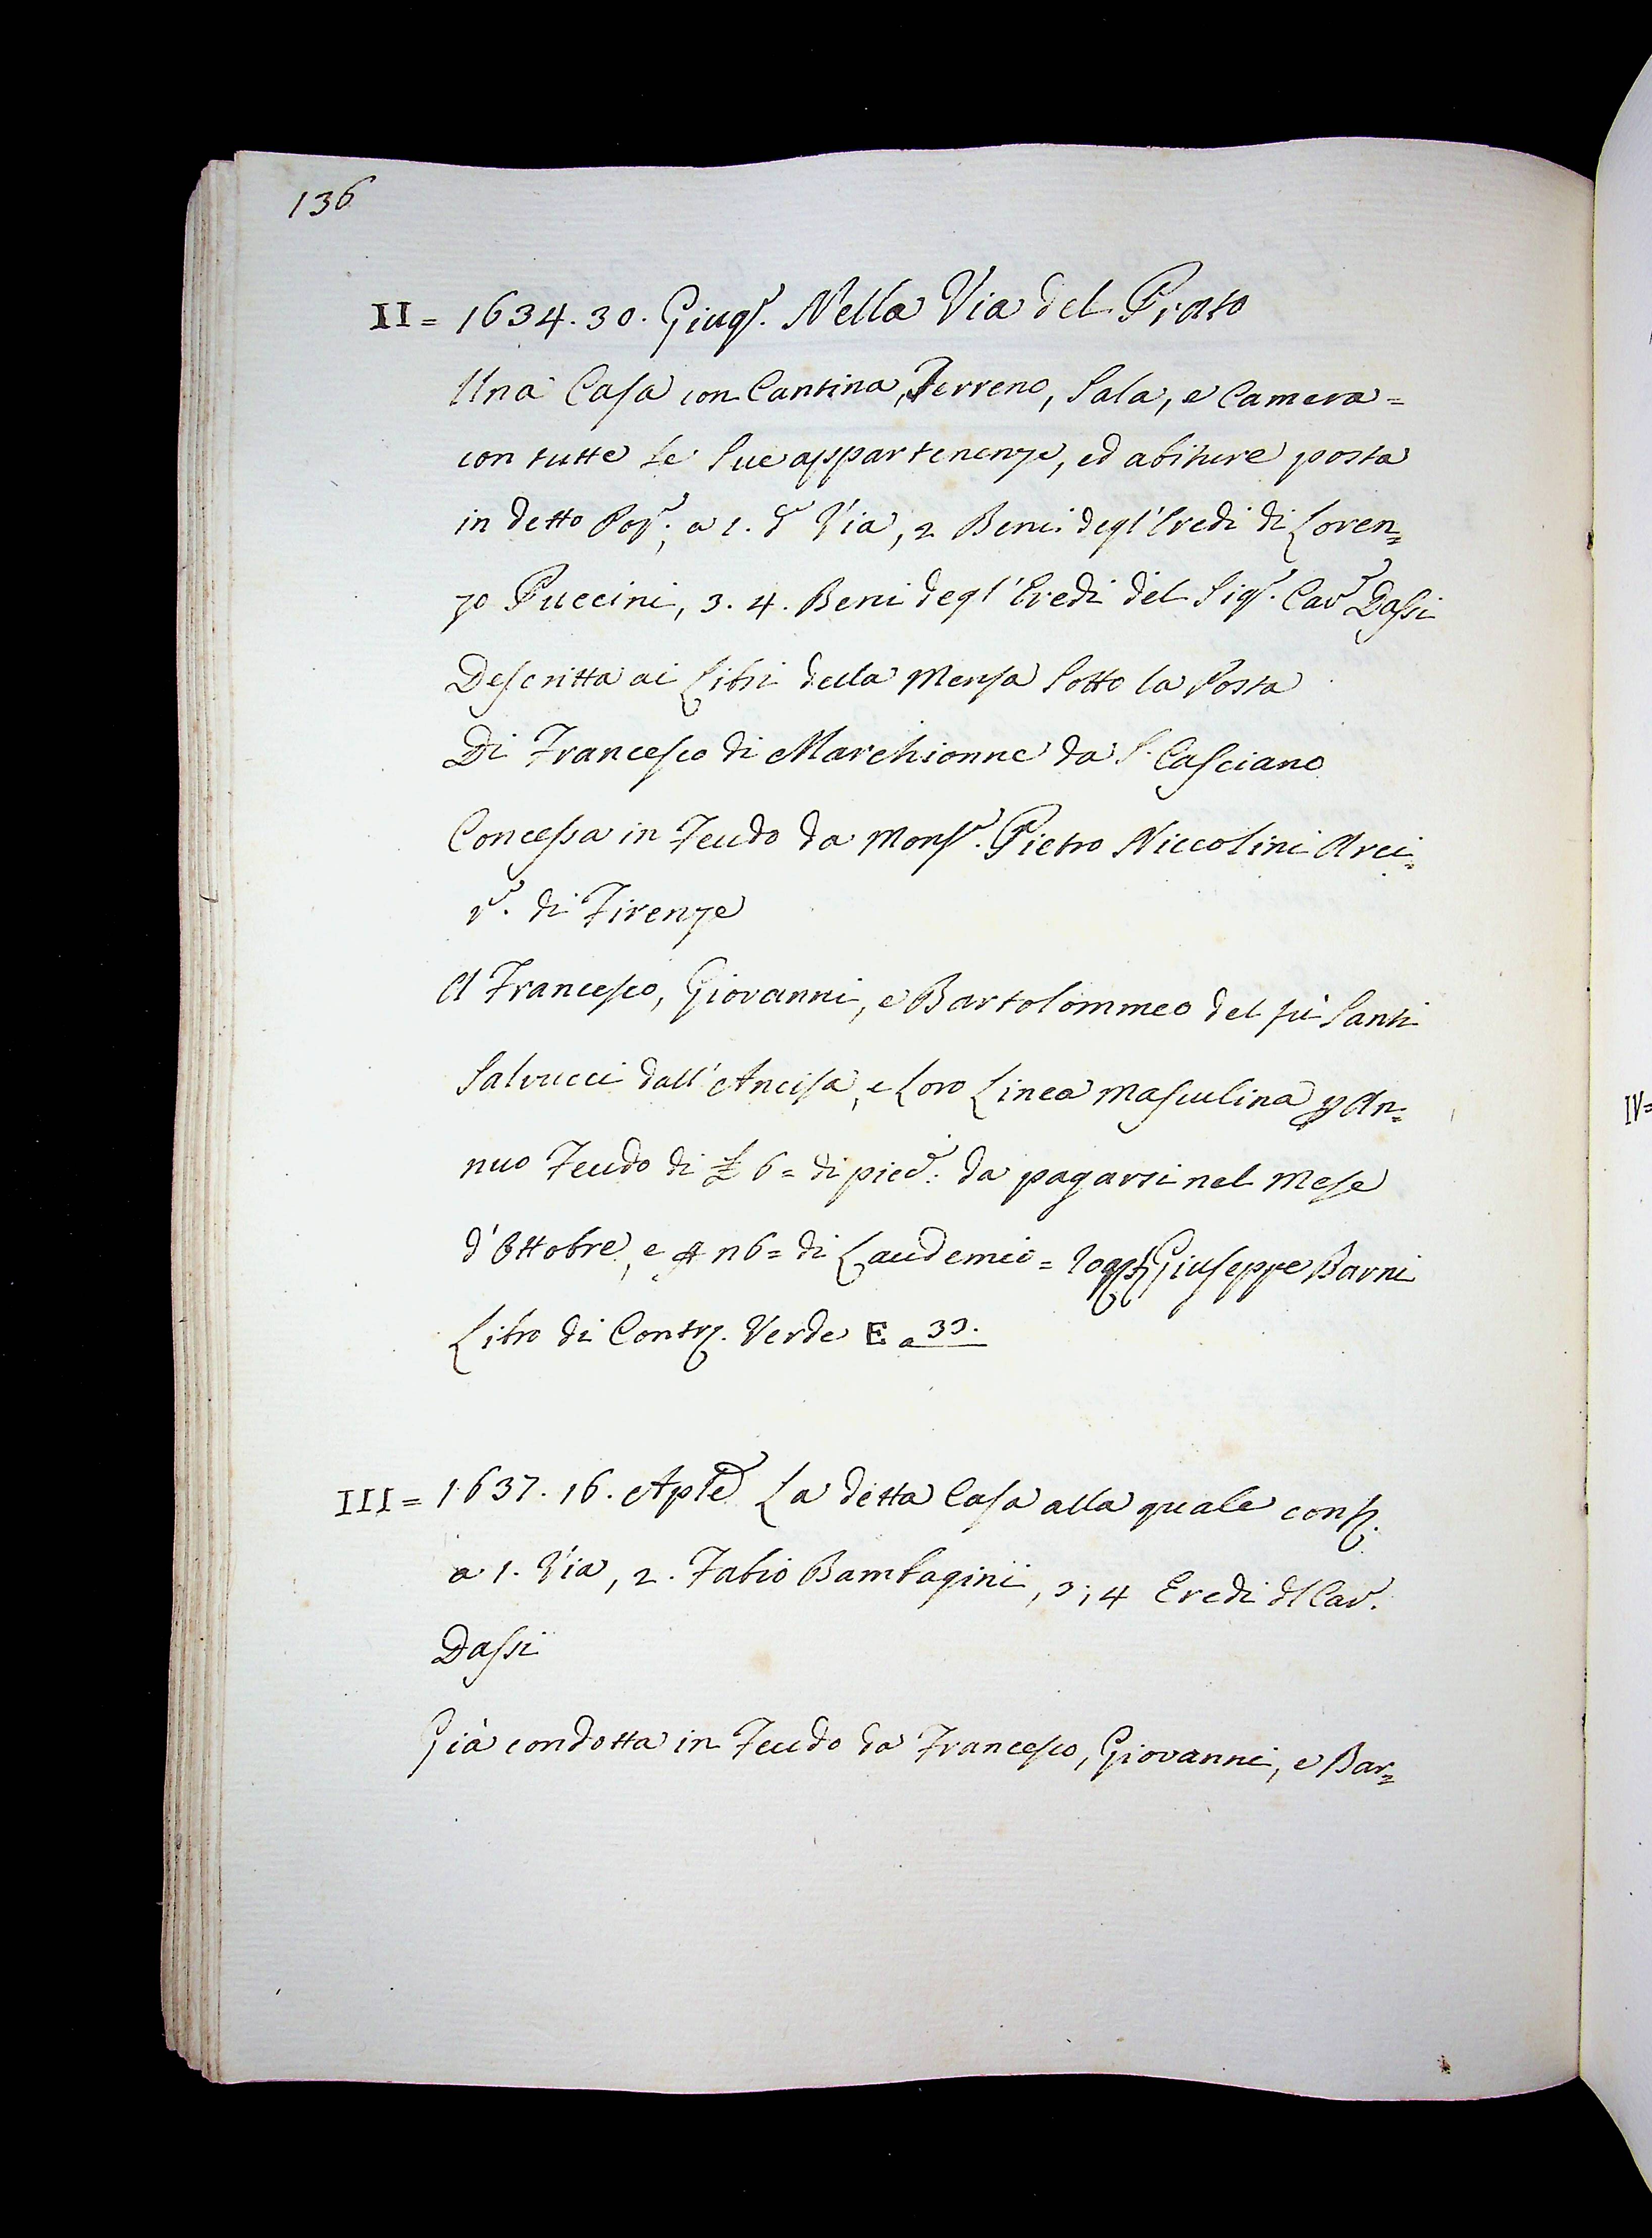 136
II = 1634. 30. Giug.o Nella Via del Prato
Una Casa con Cantina, Terreno, Sala, e Camera =
con tutte le Sue appartenenze, ed abiture posta
in detto Pop.o; a 1. d.a Via, 2 Beni degl'Eredi di Loren=
zo Puccini, 3. 4. Beni degl'Eredi del Sig.r Cav.r Dassi
Descritta ai Libri della Mensa Sotto la Posta
Di Francesco di Marchionne da S. Casciano
Concessa in Feudo da Mons.r Pietro Niccolini Arci=
v.o di Firenze
A Francesco, Giovanni, e Bartolommeo del fù Santi
Salvucci dall'Ancisa, e Loro Linea Masculina p An=
nuo Feudo di £ 6 = di picc.i da pagarsi nel Mese
d'Ottobre, e 6 = di Laudemio = Giuseppe Barni
Libro di Contr. Verde E a 33.
III = 1637. 16. Aple La detta Casa alla quale conf.
a 1. Via, 2. Fabio Bambagini, 3; 4 Eredi dl Cav.r
Dassi
Già condotta in Feudo da Francesco, Giovanni, e Bar=
IV=